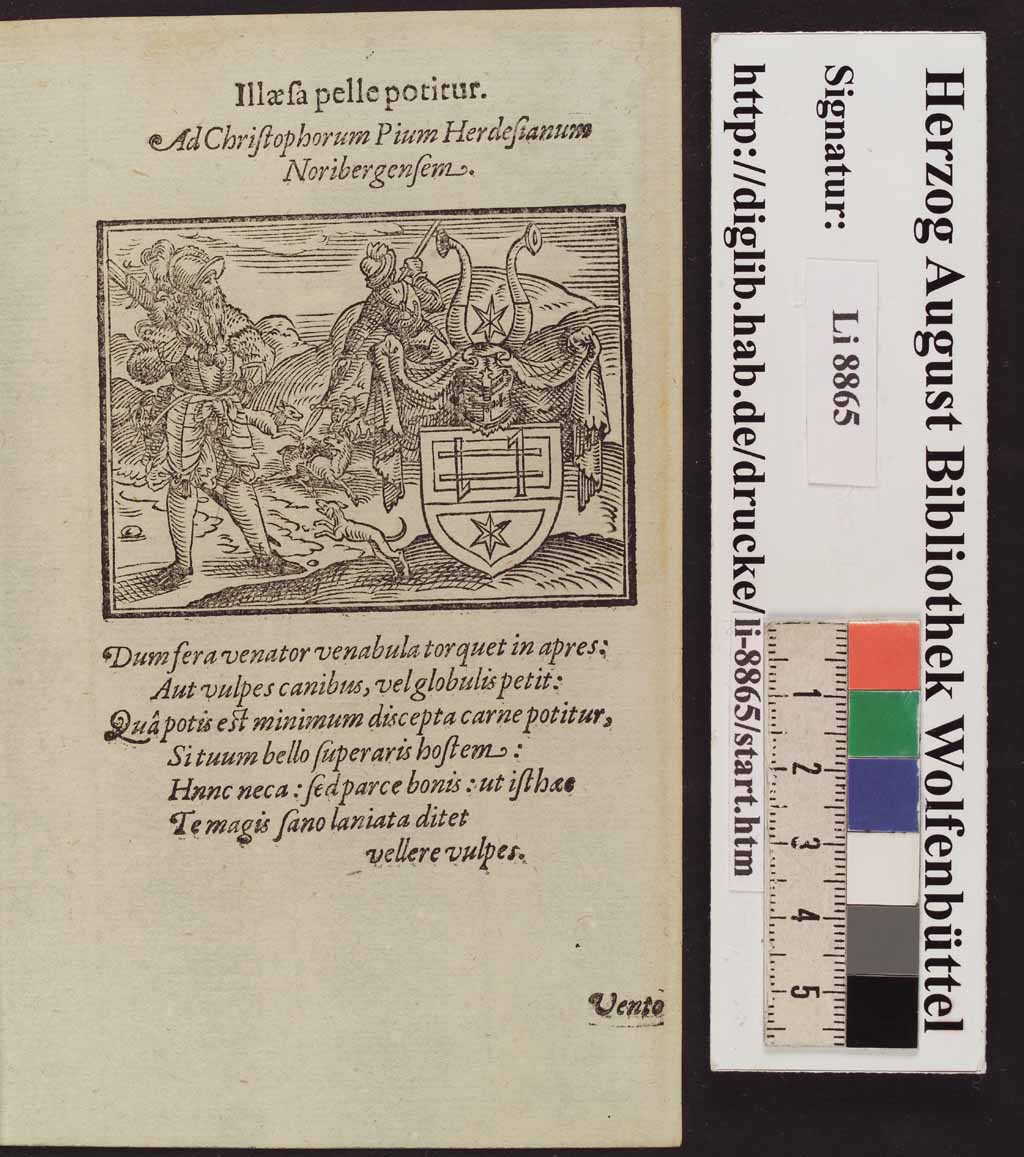 Illæſa pelle potitur.
Ad Chriſtophorum Pium Herdeſianum
Noribergenſem.
Dum fera venator venabula torquet in apres:
Aut vulpes canibus, vel globulis petit:
Quâ potis eſt minimum discepta carne potitur,
Si tuum bello ſuperaris hoſtem:
Hnnc neca: ſed parce bonis: ut iſthæc
Te magis ſano laniata ditet
vellere vulpes.
Vento
Herzog August Bibliothek Wolfenbüttel
Signatur:
Li 8865
http://diglib.hab.de/drucke/li-8865/start.htm
1
2
3
4
5